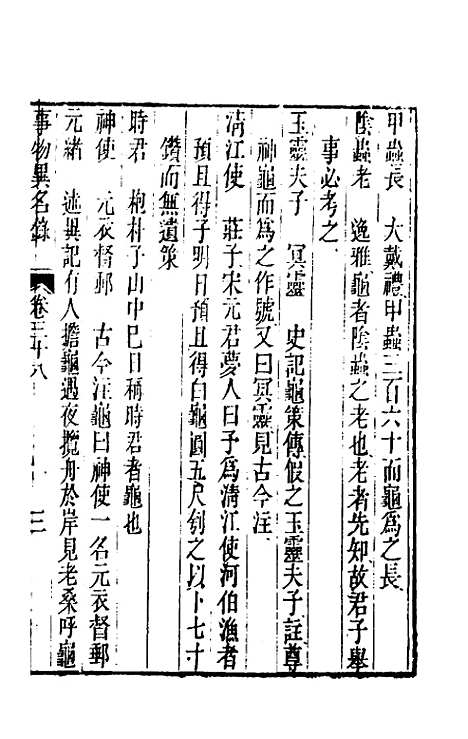 甲蟲長　大戴禮甲蟲三百六十而龜爲之長
陰蟲老　逸雅龜者陰蟲之老也老者先知故君子舉
事必考之
玉靈夫子　冥靈　史記龜策傳假之玉靈夫子註尊
神龜而爲之作號又曰冥靈見古今注
淸江使　莊子宋元君夢人曰予爲淸江使河伯漁者
預且得予明日預且得白龜圓五尺刳之以卜七十
鑽而無遺策
時君　抱朴子山中巳日稱時君者龜也
神使　元衣督郵　古今注龜曰神使一名元衣督郵
元緒　述異記有人擔龜過夜攬舟於岸見老桑呼龜
事物異名錄　卷三十八　三